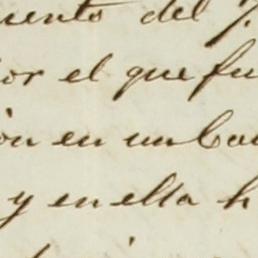 uento del
or el que fu
ón en un ba
y en ella h